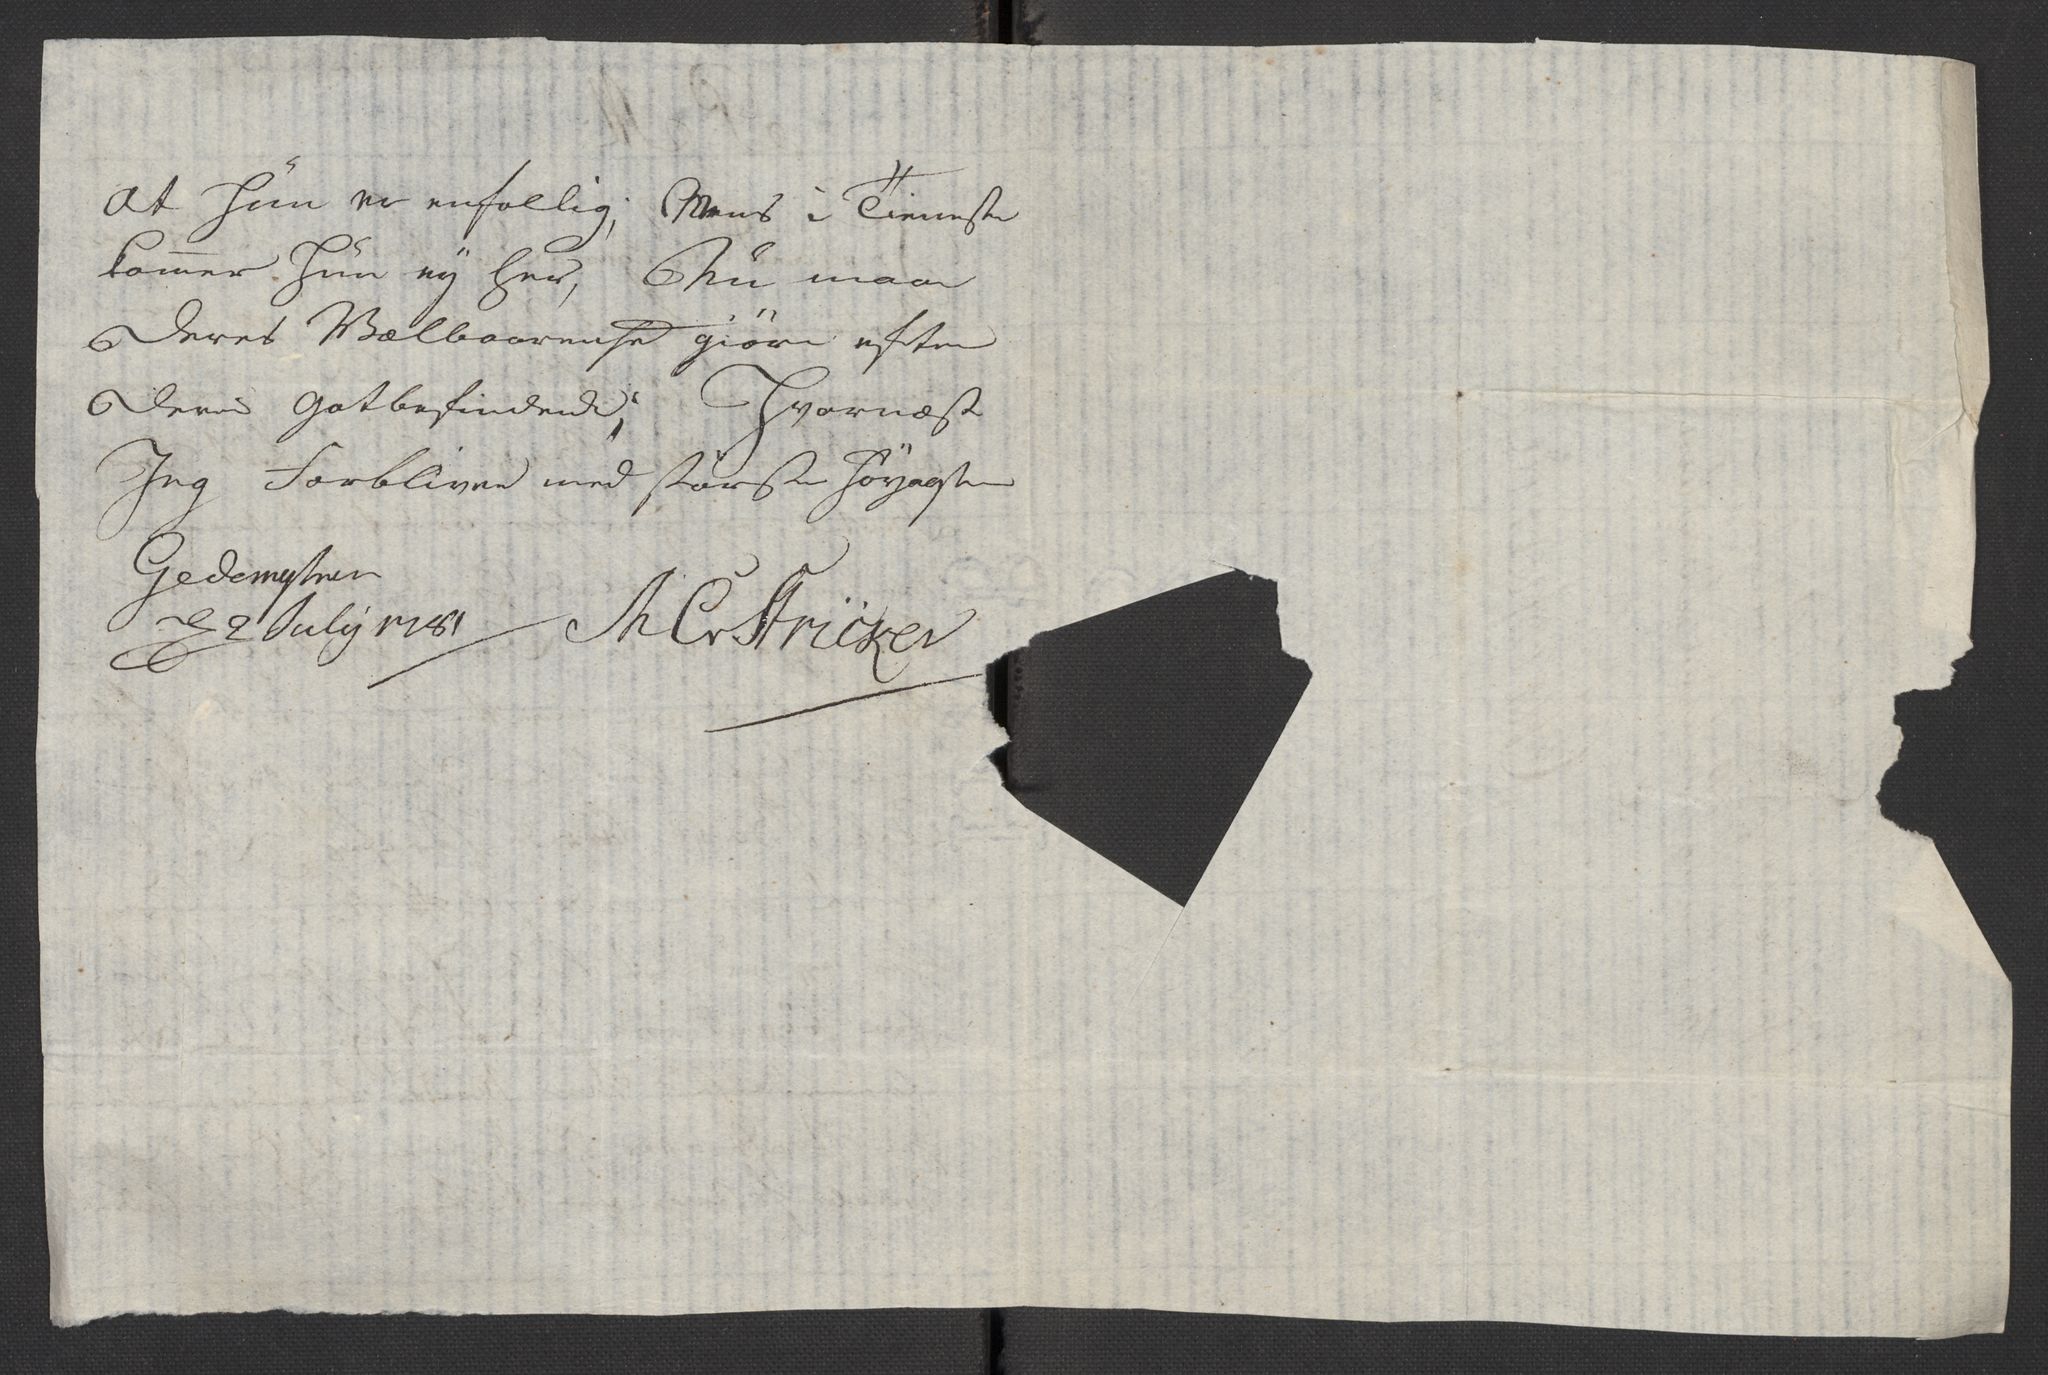 at hun er enfollig; Mens i Tieneste
kommer hun ey her, Nu maa
Deres Wælbaarenhed giöre efter
Deres gotbefindende; Hvornæst
Jeg Forbliver med störste Höyagten
Gedemysten
d 2 July 1781 M Cv Stricker